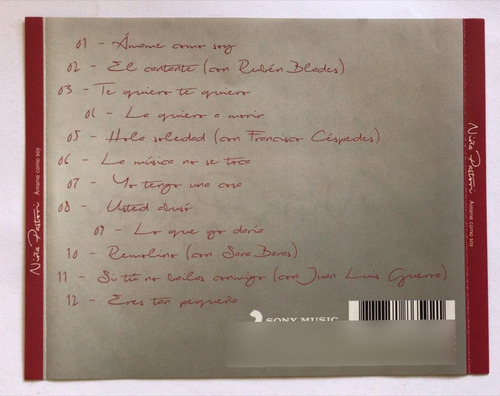 01 - Ámame como soy
02 - El cantante (con Rubén Blades)
03 - Te quiero te quiero
06 - La quiero a morir
05 - Hola soledad (con Francisco Céspedes)
06 - La música no se toca
07 - Yo tengo una cosa
08 - Usted abusó
09 - Lo que yo daría
10 - Remolino (con Sara Baras)
11 - Si tú no bailas conmigo (con Juan Luis Guerra)
12 - Eres tan pequeña
SONY MUSIC
Niña Pastori Ámame como soy
Niña Pastori Ámame como soy